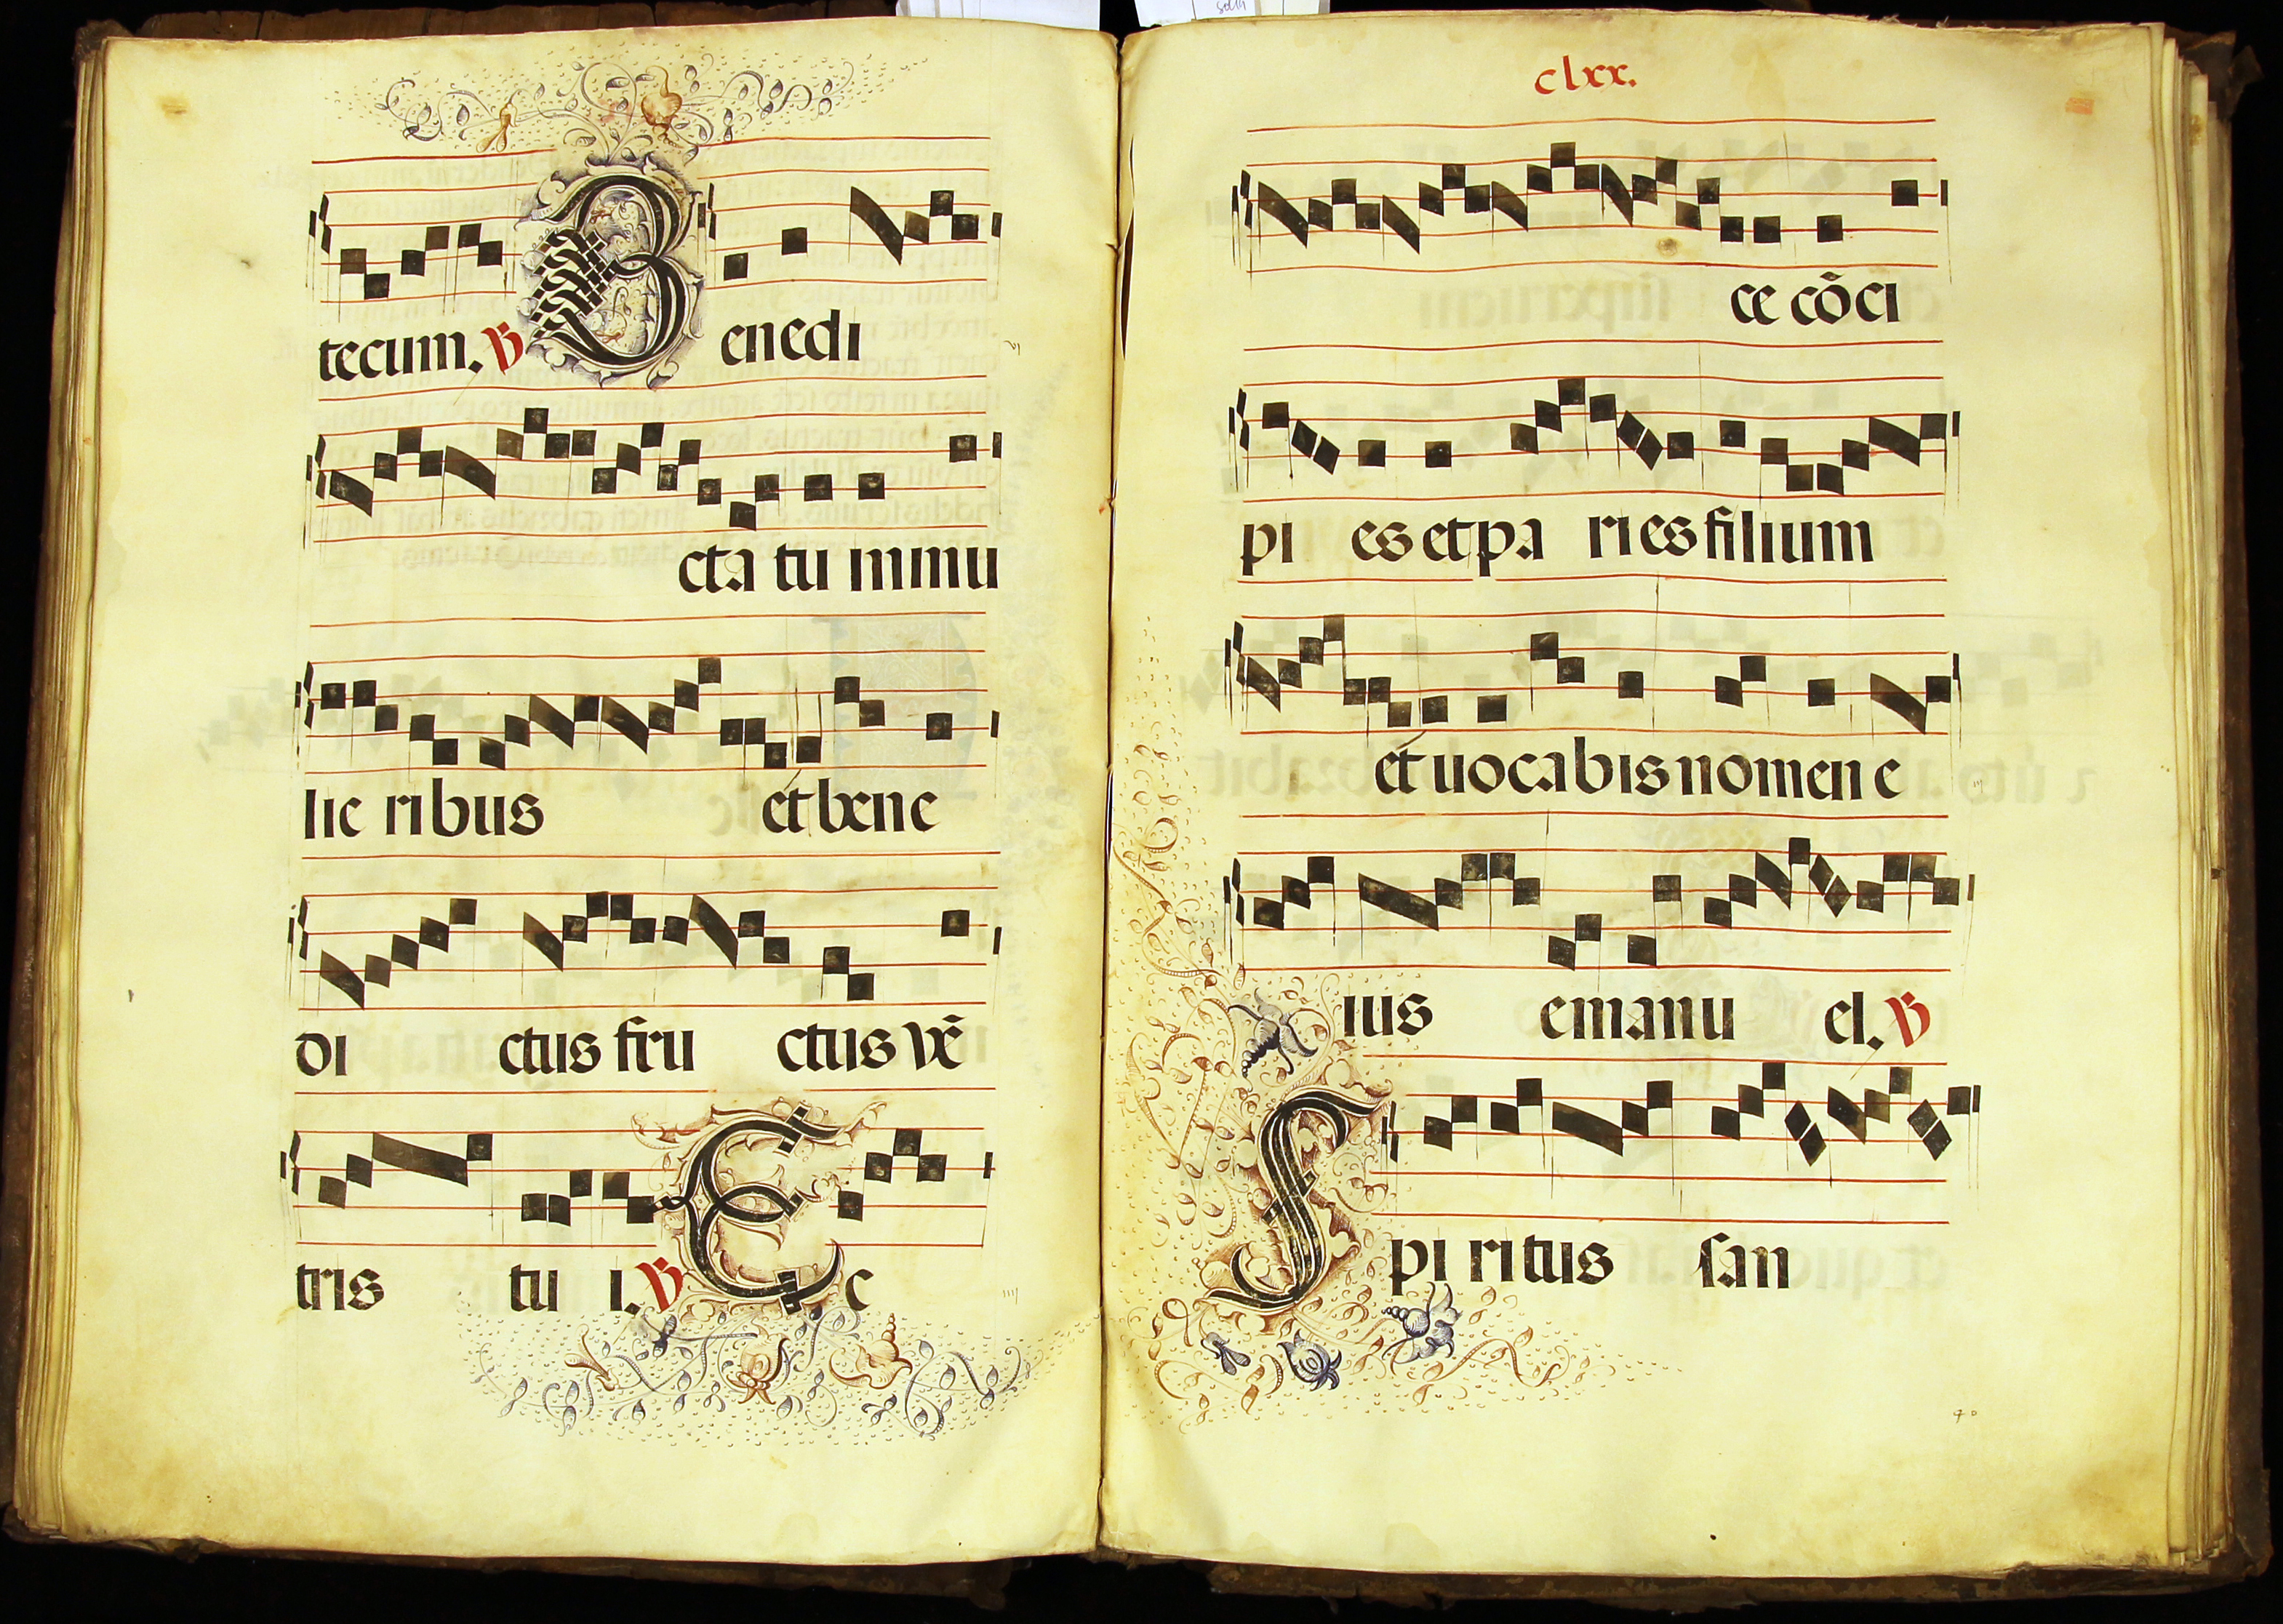 tecum. ℣ Benedi
cta tu inmu
lie ribus et bene
di ctus fru ctus vē
tris tu i. ℣ Ec
clxx.
ce cōci
pi es et pa ries filium
et uocabis nomen e
ius emanu el. ℣
Spi ritus san